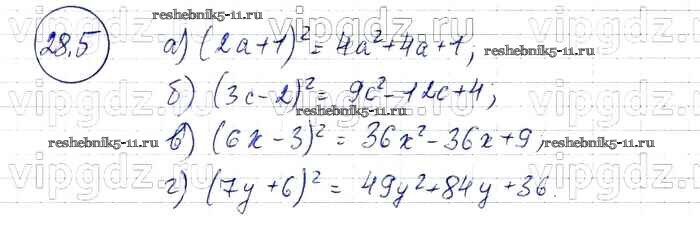 28.5 а) (2a+1)² = 4a²+4a+1;
б) (3c-2)² = 9c²-12c+4;
в) (6x-3)² = 36x²-36x+9;
г) (7y+6)² = 49y²+84y+36.
reshebnik5-11.ru
reshebnik5-11.ru
reshebnik5-11.ru
reshebnik5-11.ru
reshebnik5-11.ru
vipgdz.ru vipgdz.ru
vipgdz.ru vipgdz.ru
vipgdz.ru vipgdz.ru
vipgdz.ru vipgdz.ru